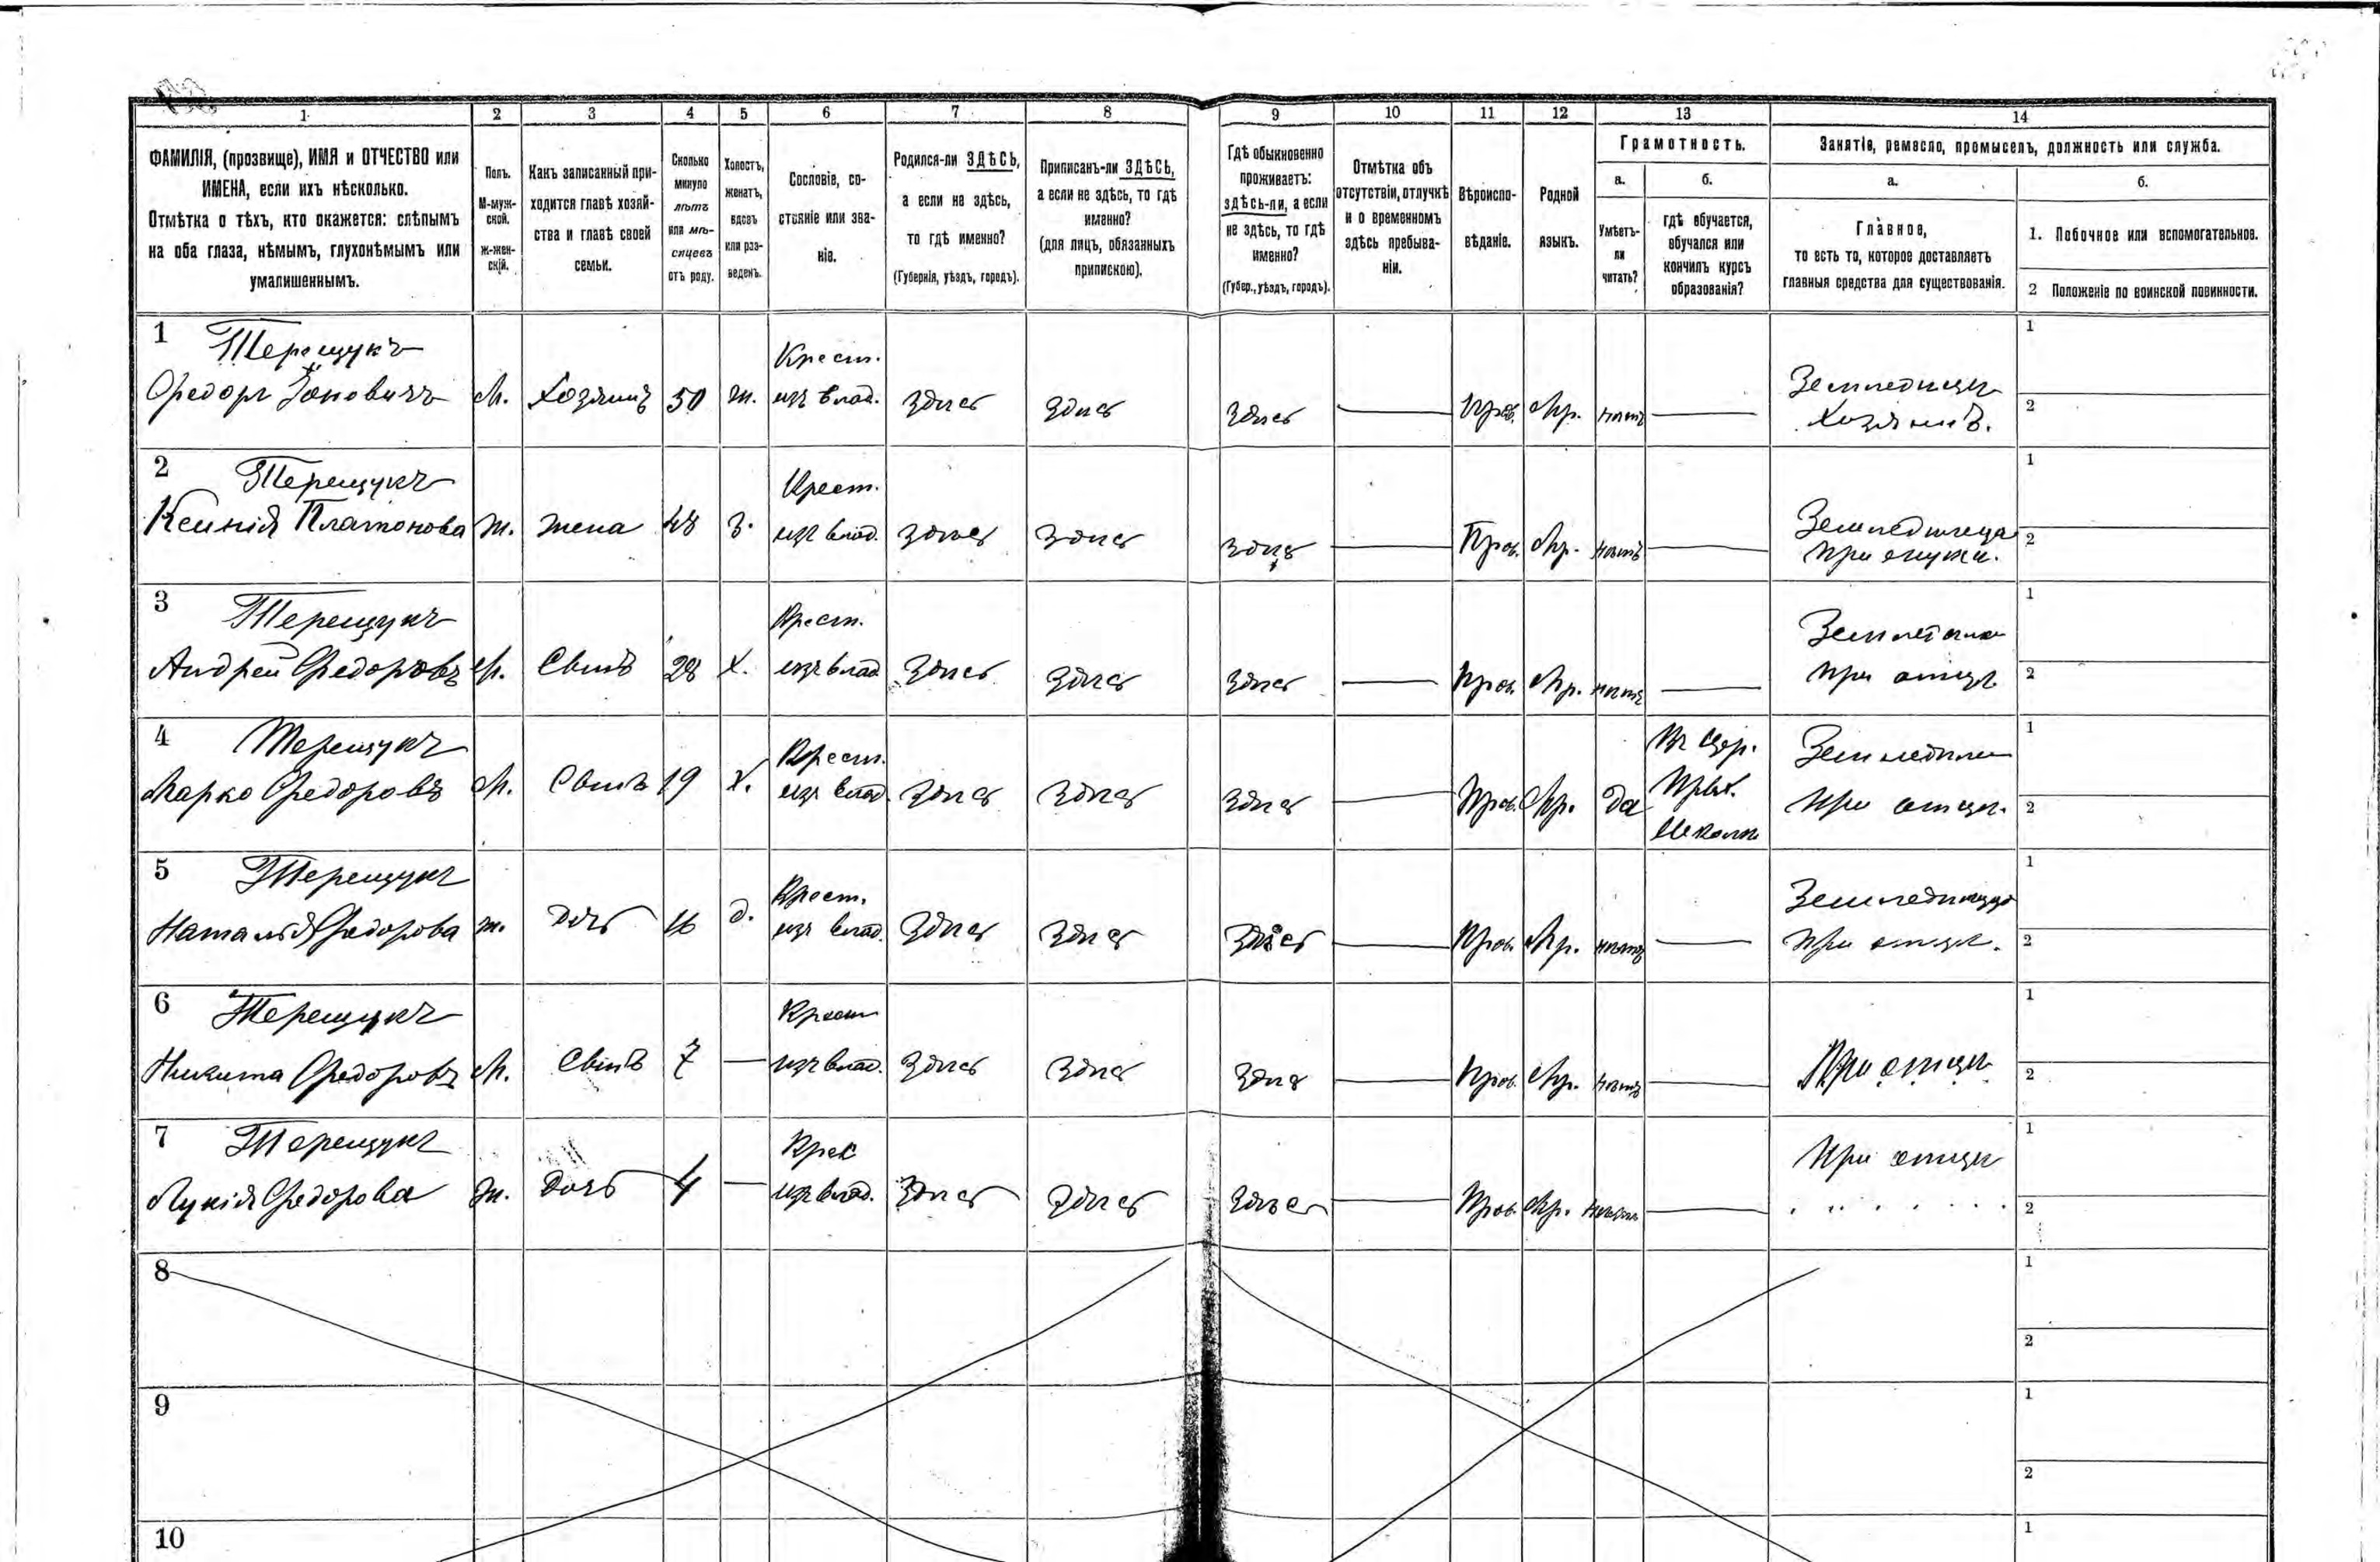 1 2 3 4 5 6 7 8 9 10 11 12 13 14
ФАМИЛІЯ, (прозвище), ИМЯ и ОТЧЕСТВО или
ИМЕНА, если ихъ нѣсколько.
Отмѣтка о тѣхъ, кто окажется: слѣпымъ
на оба глаза, нѣмымъ, глухонѣмымъ или
умалишеннымъ.
Полъ.
М-муж-
ской.
Ж-жен-
скій.
Какъ записанный при-
ходится главѣ хозяй-
ства и главѣ своей
семьи.
Сколько
минуло
лѣтъ
или мѣ-
сяцевъ
отъ роду.
Холостъ,
женатъ,
вдовъ
или раз-
веденъ.
Сословіе, со-
стояніе или зва-
ніе.
Родился-ли ЗДѢСЬ,
а если не здѣсь,
то гдѣ именно?
(Губернія, уѣздъ, городъ).
Приписанъ-ли ЗДѢСЬ,
а если не здѣсь, то гдѣ
именно?
(для лицъ, обязанныхъ
припискою).
Гдѣ обыкновенно
проживаетъ:
здѣсь-ли, а если
не здѣсь, то гдѣ
именно?
(Губер., уѣздъ, городъ).
Отмѣтка объ
отсутствіи, отлучкѣ
и о временномъ
здѣсь пребыва-
ніи.
Вѣроиспо-
вѣданіе.
Родной
языкъ.
Грамотность.
а.
Умѣетъ-
ли
читать?
б.
гдѣ обучается,
обучался или
кончилъ курсъ
образованія?
Занятіе, ремесло, промыселъ, должность или служба.
а.
Главное,
то есть то, которое доставляетъ
главныя средства для существованія.
б.
1. Побочное или вспомогательное.
2 Положеніе по воинской повинности.
1 Терещукъ Крест. 1
Федоръ Зоновичъ М. Хозяинъ 50 ж. изъ влад. здѣсь здѣсь здѣсь — Прав. Мр. нѣтъ — Земледѣлецъ 2
Хозяинъ.
2 Терещукъ Крест. 1
Ксенія Платонова ж. жена 48 з. изъ влад. здѣсь здѣсь здѣсь — Прав. Мр. нѣтъ — Земледѣлица 2
при мужѣ.
3 Терещукъ Крест. Земледѣлецъ 1
Андрей Федоровъ М. Сынъ 28 х. изъ влад здѣсь здѣсь здѣсь — Прав. Мр. нѣтъ — при отцѣ 2
4 Терещукъ Крест. Въ Цер. Земледѣлецъ 1
Марко Федоровъ М. Сынъ 19 х. изъ влад. здѣсь здѣсь здѣсь — Прав. Мр. да Прих. при отцѣ. 2
Школѣ
5 Терещукъ Крест. Земледѣлица 1
Наталья Федорова ж. дочь 16 д. изъ влад. здѣсь здѣсь здѣсь — Прав. Мр. нѣтъ — при отцѣ. 2
6 Терещукъ Крест 1
Никита Федоровъ М. Сынъ 7 — изъ влад. здѣсь здѣсь здѣсь — Прав. Мр. нѣтъ — При отцѣ 2
7 Терещукъ Крес При отцѣ 1
Лукія Федорова ж. дочь 4 — изъ влад. здѣсь здѣсь здѣсь — Прав. Мр. нѣтъ — 2
8 1
2
9 1
2
10 1